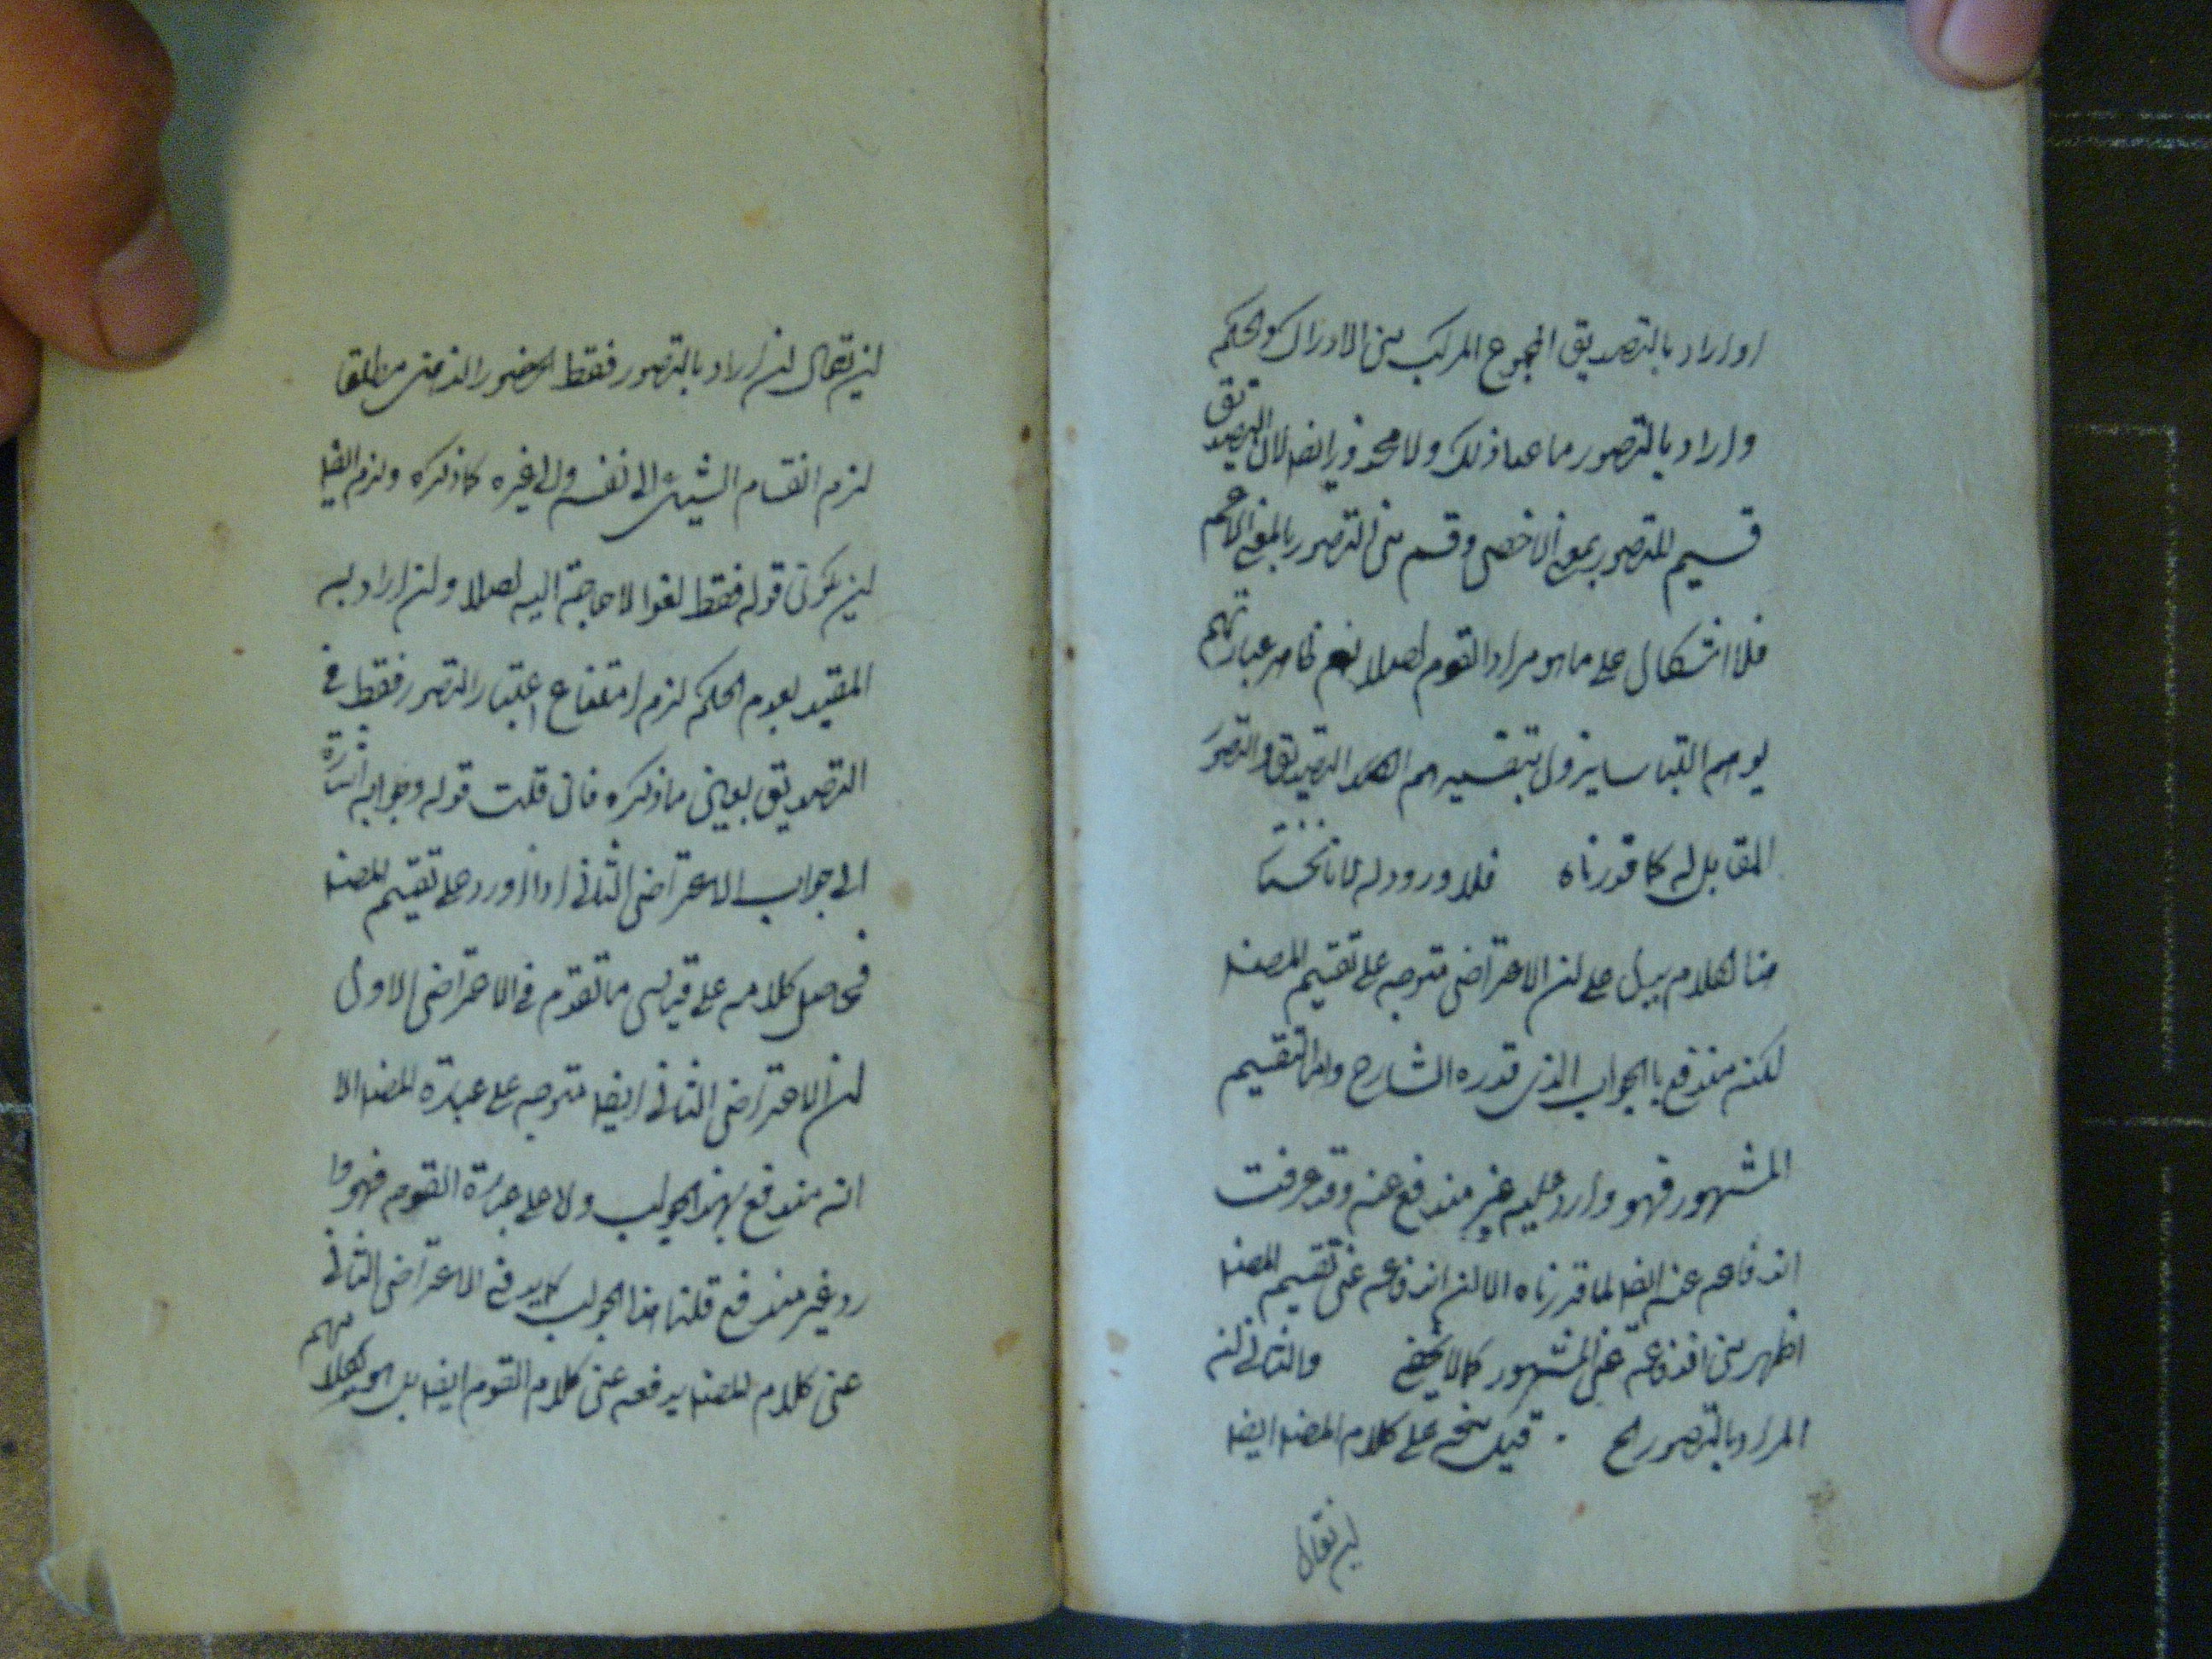 او اراد بالتصديق المجموع المركب من الادراك والحكم
واراد بالتصور ما عدا ذلك ولا محذور ايضا لان التصديق
قسيم للتصور بمعنى الاخص وقسم من التصور بالمعنى الاعم
فلا اشكال على ما هو مراد القوم اصلا نعم ظاهر عبارتهم
يوهم التباسا يزول بتفسيرهم التصديق والتصور
المقابل له كما قررناه فلا ورود له
هذا الكلام يدل على ان الاعتراض متوجه على تقسيم المصنف
لكنه مندفع بالجواب الذى قرره الشارح واما التقسيم
المشهور فهو وارد عليه غير مندفع عنه وقد عرفت
اندفاعه عنه ايضا لما قررناه الا ان اندفاعه عن تقسيم المصنف
اظهر من اندفاعه عن المشهور كما لا يخفى والثانى ان
المراد بالتصور الخ قيل يتجه على كلام المصنف ايضا
ان يقال
ان يقال ان اراد بالتصور فقط الحضور الذهنى مطلقا
لزم انقسام الشىء الى نفسه والى غيره كما ذكره ولزم ايضا
ان يكون قوله فقط لغوا لا حاجة اليه اصلا وان اراد به
المقيد بعدم الحكم لزم امتناع اعتبار التصور فقط فى
التصديق بعين ما ذكره فان قلت قوله وجوابه اشارة
الى جواب الاعتراض الثانى اذا اورد على تقسيم المصنف
فحاصل كلامه على قياس ما تقدم فى الاعتراض الاول
ان الاعتراض الثانى ايضا متوجه على عبارة المصنف الا
انه مندفع بهذا الجواب ولا على عبارة القوم فهو وا
رد غير مندفع قلنا هذا الجواب كما يدفع الاعتراض الثانى
عن كلام المصنف يدفعه عن كلام القوم ايضا بل هو